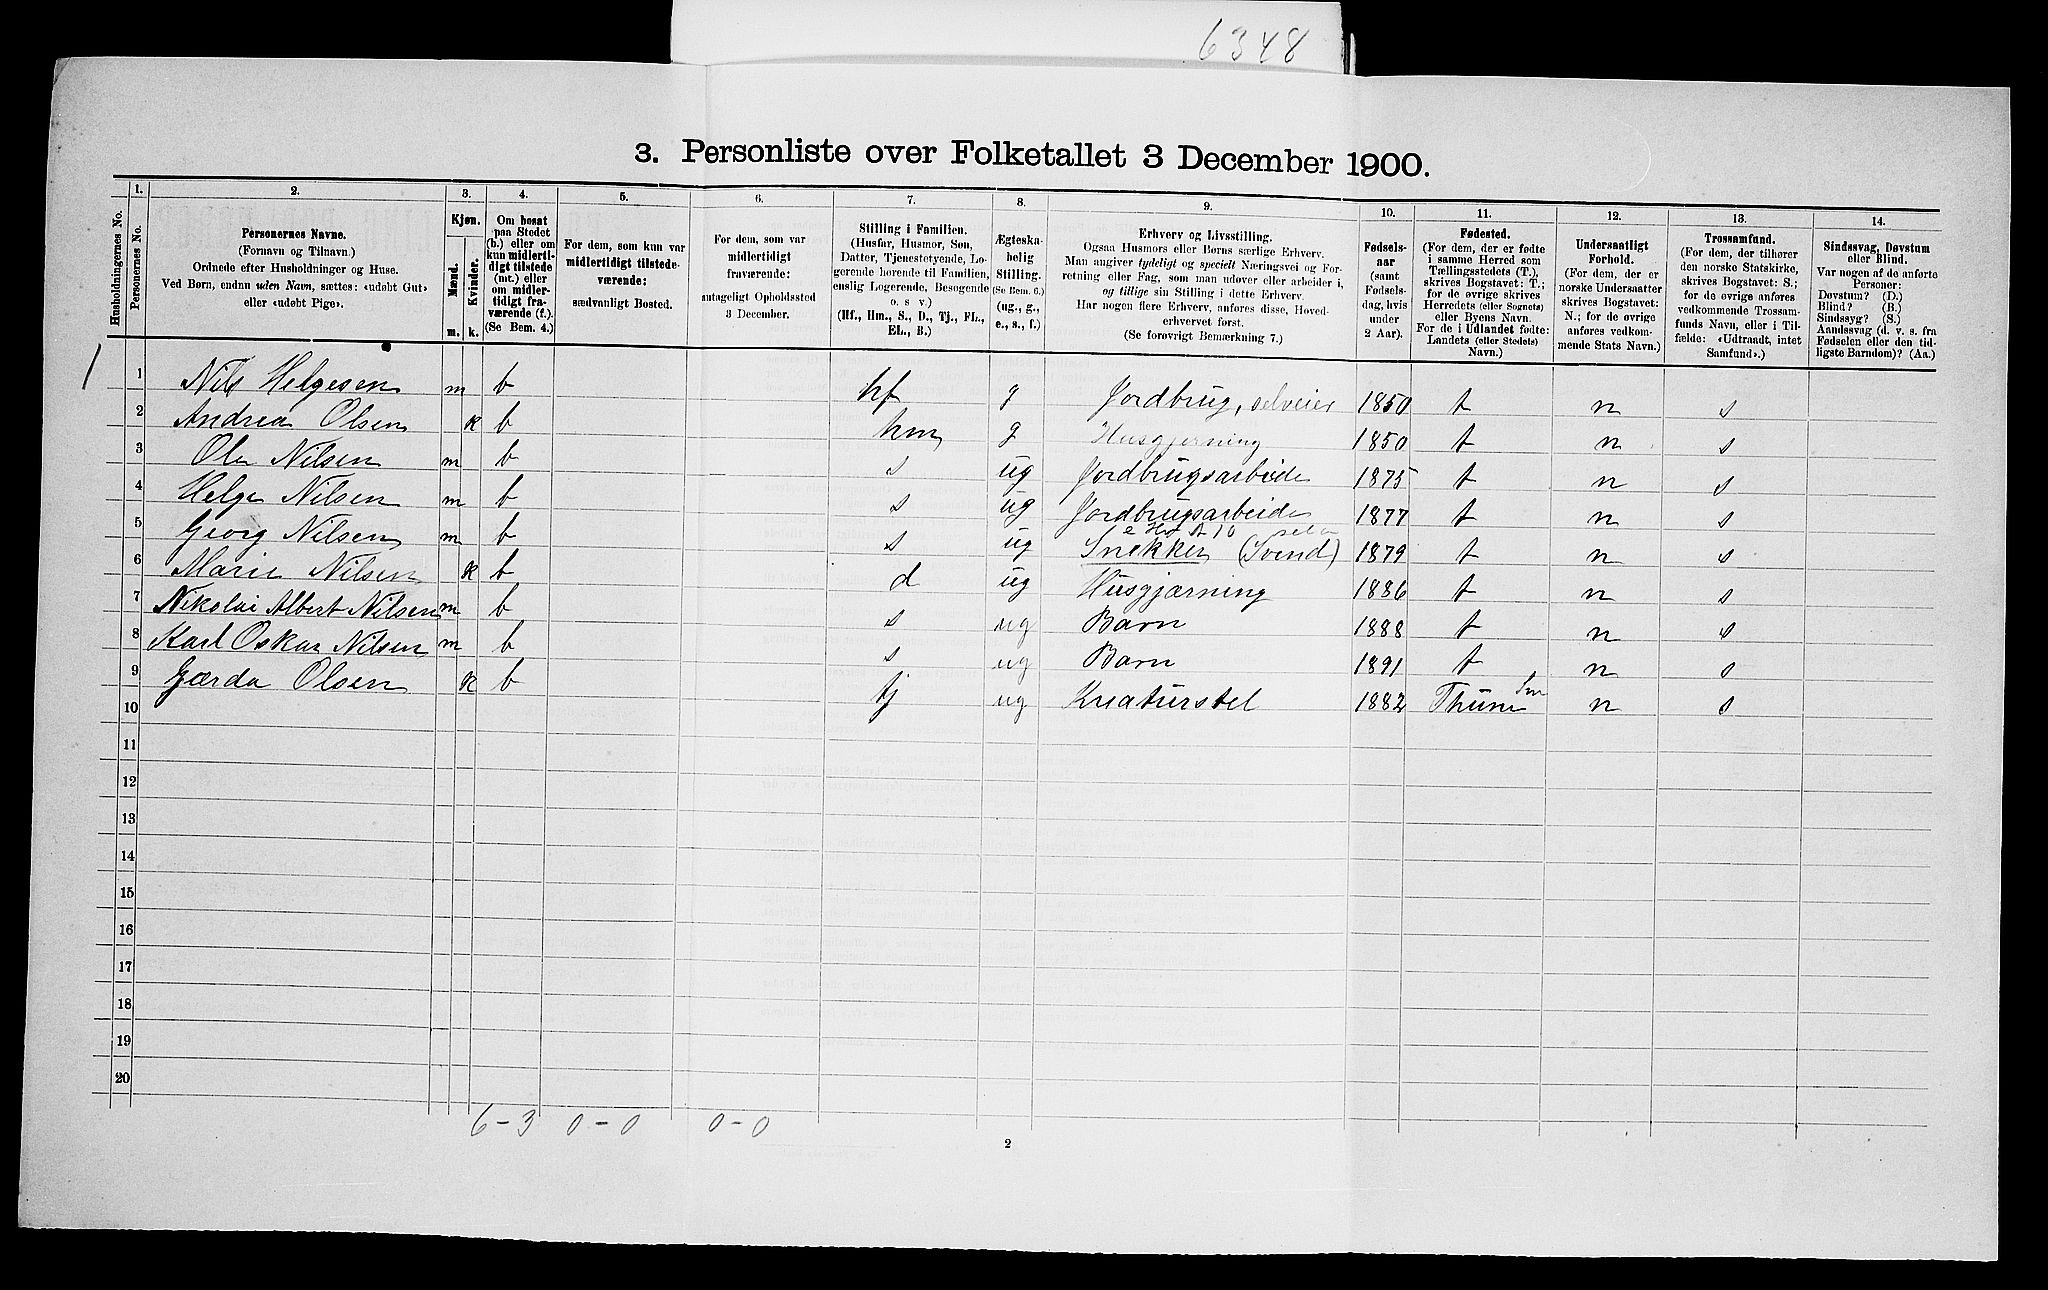 6348
3. Personliste over Folketallet 3 December 1900.
Husholdningernes No.
1.
Personernes No.
2.
Personernes Navne.
(Fornavn og Tilnavn.)
Ordnede efter Husholdninger og Huse.
Ved Børn, endnu uden Navn, sættes: «udøbt Gut»
eller «udøbt Pige».
3.
Kjøn.
Mænd.
Kvinder.
m.
k.
4.
Om bosat
paa Stedet
(b.) eller om
kun midlerti-
digt tilstede
(mt.) eller
om midler-
tidigt fra-
værende (f.).
(Se Bem. 4.)
5.
For dem, som kun var
midlertidigt tilstede-
værende:
sædvanligt Bosted.
6.
For dem, som var
midlertidigt
fraværende:
antageligt Opholdssted
3 December.
7.
Stilling i Familien.
(Husfar, Husmor, Søn,
Datter, Tjenestetyende, Lo-
gerende hørende til Familien,
enslig Logerende, Besøgende
o. s v.)
(Hf., Hm., S., D., Tj., FL.,
EL., B.)
8.
Ægteska-
belig
Stilling.
(Se Bem. 6.)
(ug., g.,
e., s., f.)
9.
Erhverv og Livsstilling.
Ogsaa Husmors eller Børns særlige Erhverv.
Man angiver tydeligt og specielt Næringsvei og For-
retning eller Fag, som man udøver eller arbeider i,
og tillige sin Stilling i dette Erhverv.
Har nogen flere Erhverv, anføres disse, Hoved-
erhvervet først.
(Se forøvrigt Bemærkning 7.)
10.
Fødsels-
aar
(samt
Fødsels-
dag, hvis
under
2 Aar).
11.
Fødested.
(For dem, der er fødte
i samme Herred som
Tællingsstedets (T.),
skrives Bogstavet: T.;
for de øvrige skrives
Herredets (eller Sognets)
eller Byens Navn.
For de i Udlandet fødte:
Landets (eller Stedets)
Navn.)
12.
Undersaatligt
Forhold.
(For dem, der er
norske Undersaatter
skrives Bogstavet:
N.; for de øvrige
anføres vedkom-
mende Stats Navn.)
13.
Trossamfund.
(For dem, der tilhører
den norske Statskirke,
skrives Bogstavet: S.;
for de øvrige anføres
vedkommende Trossam-
funds Navn, eller i Til-
fælde: «Udtraadt, intet
Samfund».)
14.
Sindssvag, Døvstum
eller Blind.
Var nogen af de anførte
Personer:
Døvstum? (D.)
Blind? (B.)
Sindssyg? (S.)
Aandssvag (d. v. s. fra
Fødselen eller den tid-
ligste Barndom)? (Aa.)
1 1 Nils Helgesen m b hf g Jordbrug, selveier 1850 t n s
2 Andrea Olsen k b hm g Husgjerning 1850 t n s
3 Ole Nilsen m b s ug Jordbrugsarbeide 1875 t n s
4 Helge Nilsen m b s ug Jordbrugsarbeide 1877 t n s
5 Georg Nilsen m b s ug Snekker (Svend) 1879 t n s
6 Marie Nilsen k b d ug Husgjærning 1886 t n s
7 Nikolai Albert Nilsen m b s ug Barn 1888 t n s
8 Karl Oskar Nilsen m b s ug Barn 1891 t n s
9 Gærda Olsen k b tj ug Kreaturstel 1882 Thune n s
10
11
12
13
14
15
16
17
18
19
20
6-3 0-0 0-0
2